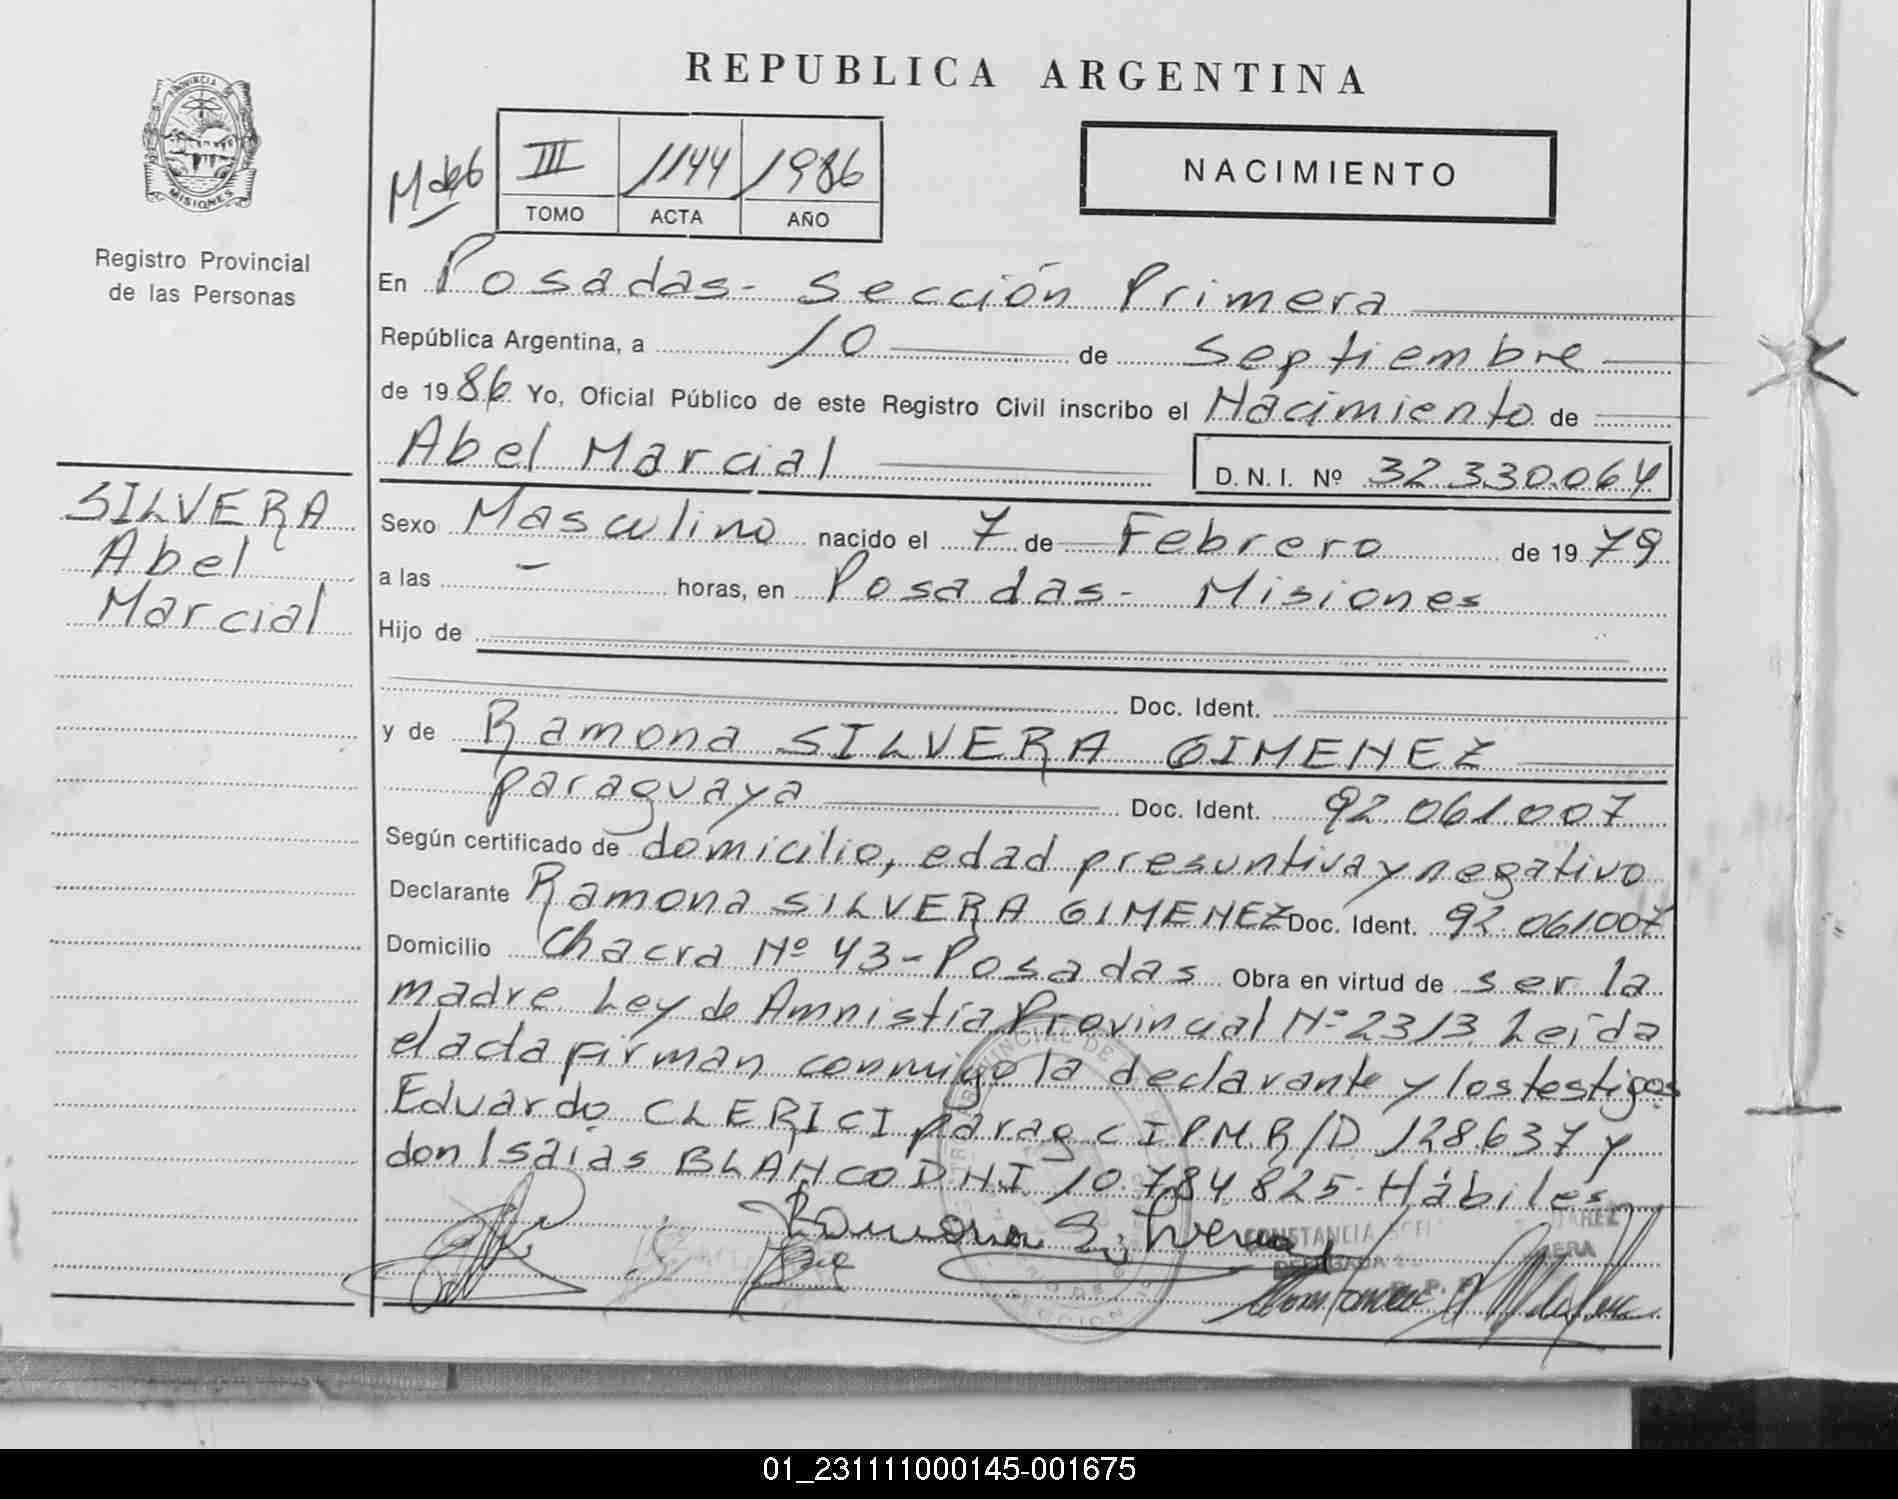 REPUBLICA ARGENTINA
PROVINCIA DE
MISIONES
Registro Provincial
de las Personas
III 1144 1986
TOMO ACTA AÑO
NACIMIENTO
En Posadas - Sección Primera
República Argentina, a 10 de Septiembre
de 1986 Yo, Oficial Público de este Registro Civil inscribo el Nacimiento de
Abel Marcial D. N. I. Nº 32.330.064
SILVERA
Abel
Marcial
Sexo Masculino nacido el 7 de Febrero de 1979
a las - horas, en Posadas - Misiones
Hijo de
Doc. Ident.
y de Ramona SILVERA GIMENEZ
paraguaya Doc. Ident. 92.061.007
Según certificado de domicilio, edad presuntiva y negativo
Declarante Ramona SILVERA GIMENEZ Doc. Ident. 92.061.007
Domicilio Chacra Nº 43 - Posadas Obra en virtud de ser la
madre Ley de Amnistía Provincial Nº 2313. Leída
el acta firman conmigo la declarante y los testigos
Eduardo CLERICI parag CIPMR/D 128.637 y
don Isaías BLANCO DNI 10.784.825 - Hábiles
Ramona Silvera
01_231111000145-001675